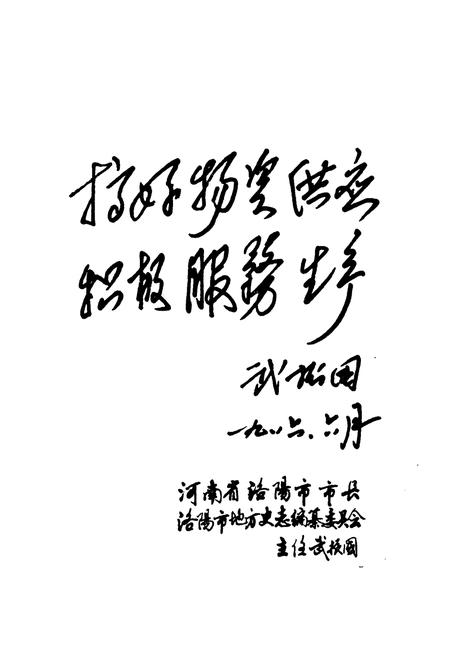 搞好物资供应
积极服务生产
武振国
一九八六.六月
河南省洛阳市市长
洛阳市地方史志编纂委员会
主任武振国